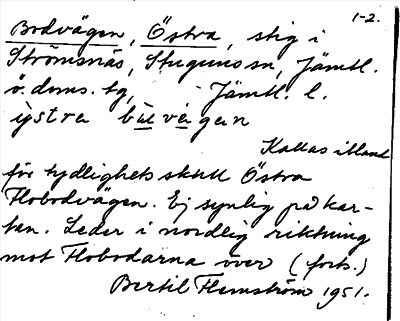 1-2.
Bodvägen, Östra, stig i
Strömsnäs, Stuguns sn, Jämtl.
ö. doms. tg, Jämtl. l.
ỳstra bùːvéːgen
Kallas ibland
för tydlighets skull Östra
Flobodvägen. Ej synlig på kar-
tan. Leder i nordlig riktning
mot Flobodarna över (forts.)
Bertil Flemström 1951.